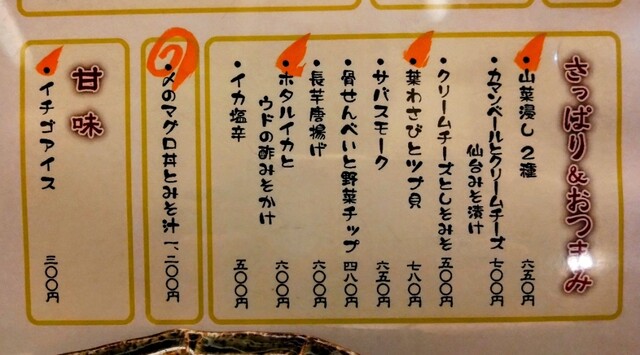 さっぱり&おつまみ
・山菜浸し2種 六五〇円
・カマンベールとクリームチーズ
仙台みそ漬け 七〇〇円
・クリームチーズとしそみそ 五〇〇円
・葉わさびとツブ貝 七八〇円
・サバスモーク 六五〇円
・骨せんべいと野菜チップ 四八〇円
・長芋唐揚げ 六〇〇円
・ホタルイカと
ウドの酢みそかけ 六〇〇円
・イカ塩辛 五〇〇円
・〆のマグロ丼とみそ汁 一、二〇〇円
甘味
・イチゴアイス 三〇〇円